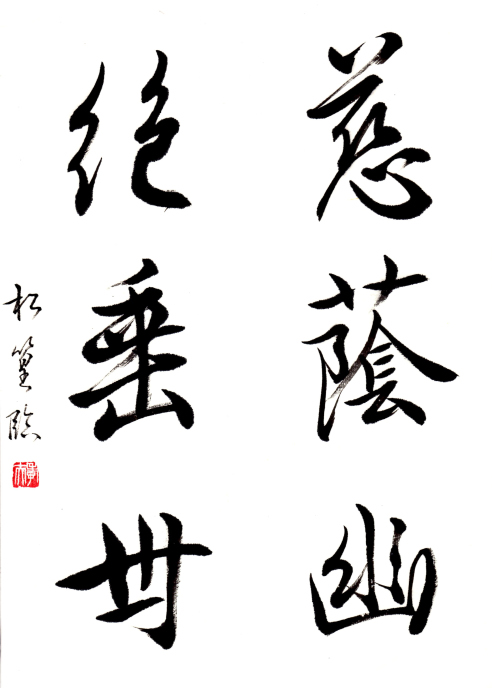 慈蔭幽
絶垂世
松篁臨